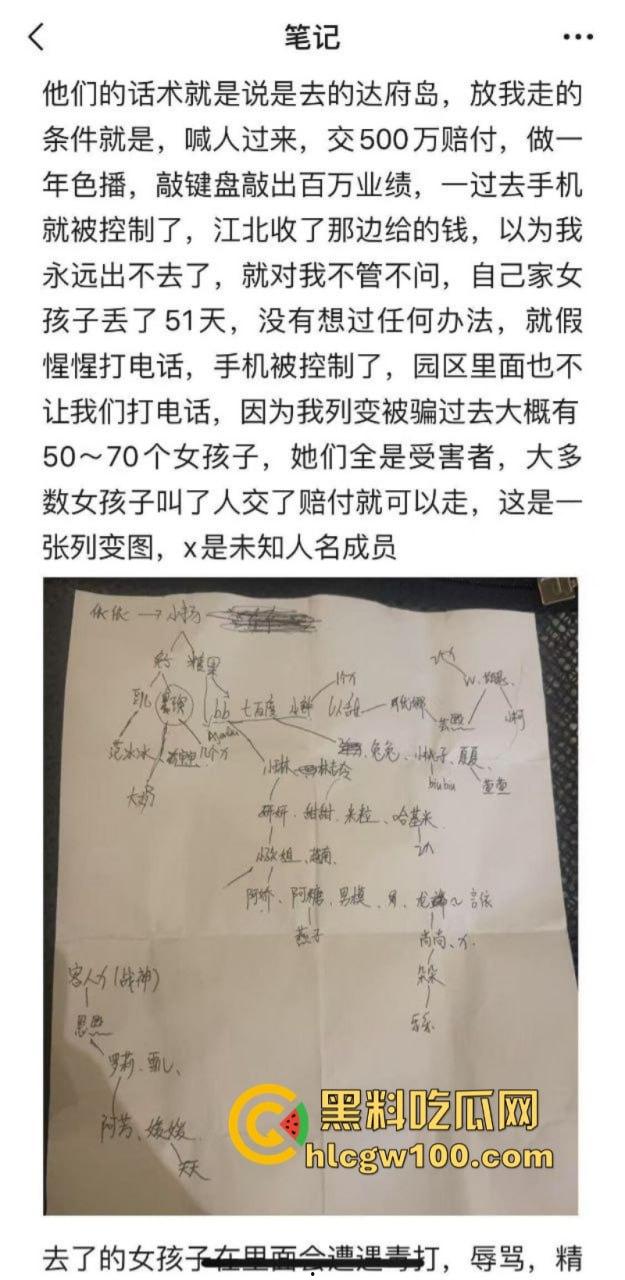 笔记
他们的话术就是说是去的达府岛，放我走的
条件就是，喊人过来，交500万赔付，做一
年色播，敲键盘敲出百万业绩，一过去手机
就被控制了，江北收了那边给的钱，以为我
永远出不去了，就对我不管不问，自己家女
孩子丢了51天，没有想过任何办法，就假
惺惺打电话，手机被控制了，园区里面也不
让我们打电话，因为我列变被骗过去大概有
50～70个女孩子，她们全是受害者，大多
数女孩子叫了人交了赔付就可以走，这是一
张列变图，x是未知人名成员
依依 → 小杨
糖果
bb 七百度
范冰冰
大奶
小琳
兔兔、小桃子、夏夏
biubiu
妍妍、甜甜、米粒、哈基米
越南
阿娇、阿糖、男模
燕子
尚尚、x
朵朵
乐乐
客人x(战神)
思思
罗莉、甄儿、
阿芳、媛媛
天天
黑料吃瓜网
hlcgw100.com
去了的女孩子在里面会遭遇毒打，辱骂，精